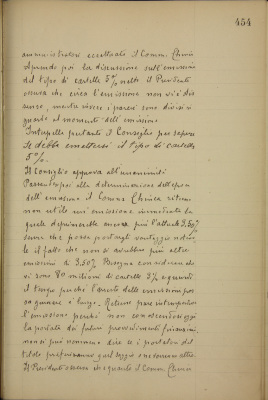 454
amministratori eccettuato il Comm. Chinca
Aprendo poi la discussione sull'emissione
del tipo di cartelle 5% netto il Presidente
osserva che circa l'emissione non vi è dis
senso, mentre invece i pareri sono divisi ri
guardo al momento dell'emissione.
Interpella pertanto il Consiglio per sapere
se debba emettersi il tipo di cartelle
5%.
Il Consiglio approva all'unanimità
Passando poi alla determinazione dell'epoca
dell'emissione il Comm. Chinca ritiene
non utile una emissione immediata la
quale deprimerebbe ancora più l'attuale 3.50%
senza che possa portargli vantaggio
il fatto che non si avrebbero più altre
emissioni di 3.50% Bisogna considerare che
vi sono 80 milioni di cartelle 5% e quindi
il tempo perché l'aumento dell'emissione pos
sa è lungo. Ritiene pure intempestiva
l'emissione perché non conoscendosi
la portata dei futuri provvedimenti finanziari,
non si può nemmeno dire se i portatori del
titolo preferiranno quel tipo
Il Presidente osserva in quanto il Comm. Chinca